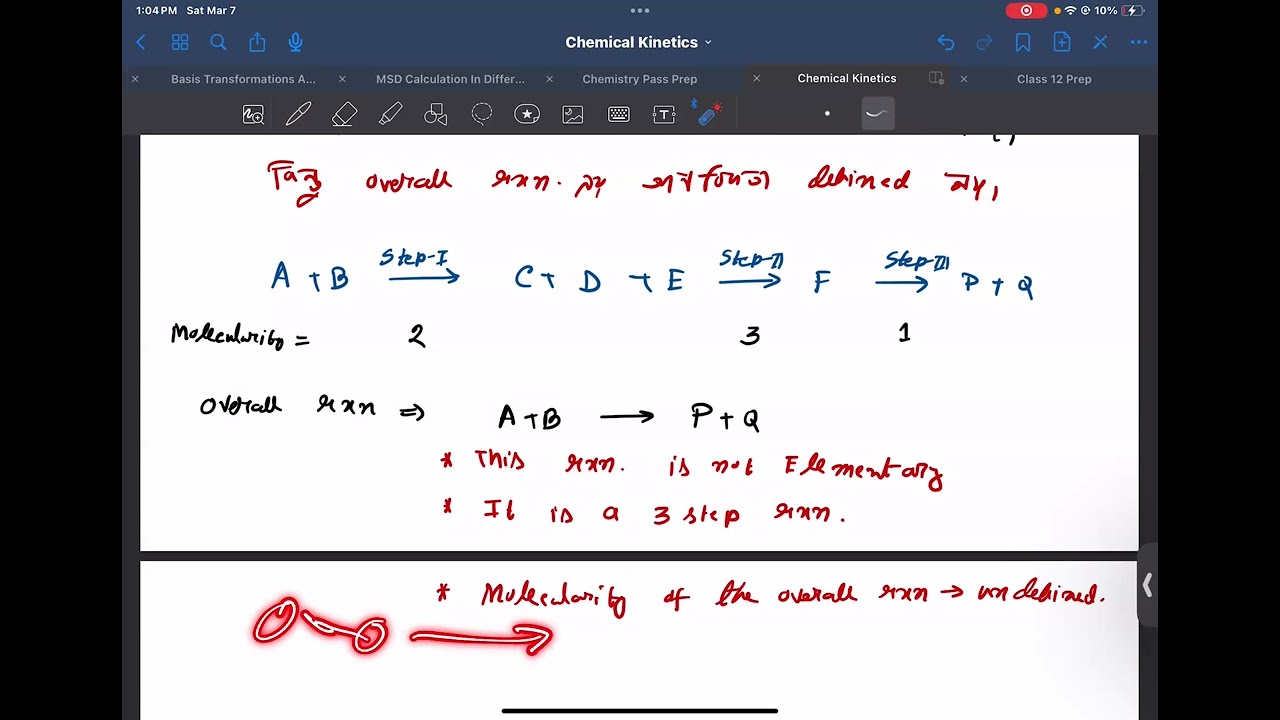 1:04 PM Sat Mar 7
10%
Chemical Kinetics
Basis Transformations A...
MSD Calculation In Differ...
Chemistry Pass Prep
Chemical Kinetics
Class 12 Prep
overall rxn. defined
A + B Step-I → C + D + E Step-II → F Step-III → P + Q
Molecularity = 2 3 1
Overall rxn ⇒ A + B → P + Q
* This rxn. is not Elementary
* It is a 3 step rxn.
* Molecularity of the overall rxn → undefined.